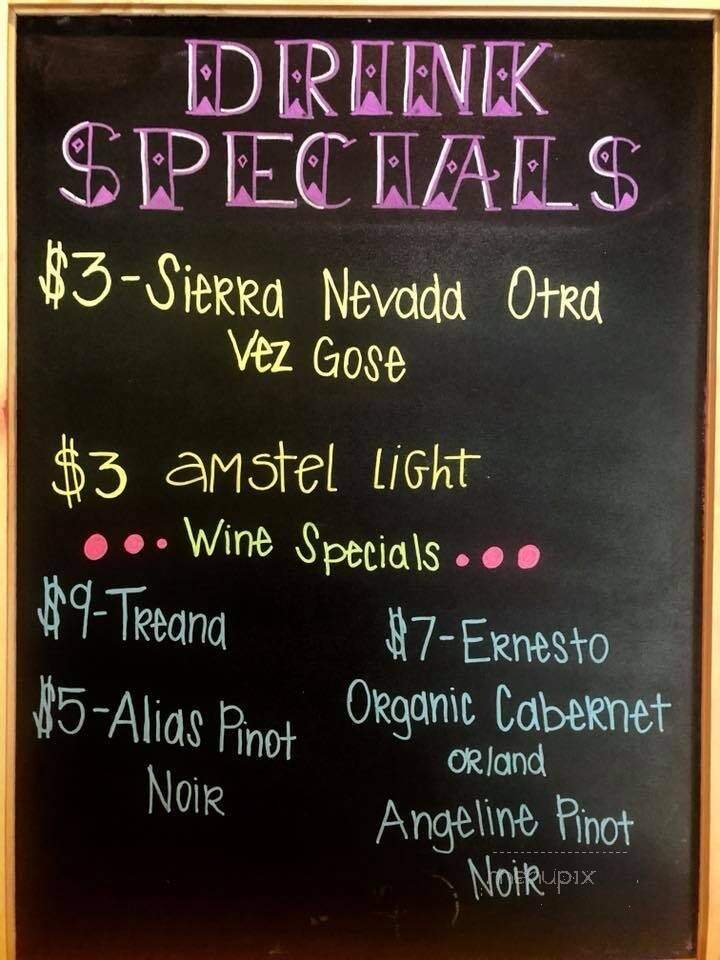 DRINK
SPECIALS
$3-Sierra Nevada Otra
Vez Gose
$3 amstel Light
Wine Specials
$9-Treana
$5-Alias Pinot
Noir
$7-Ernesto
Organic Cabernet
or/and
Angeline Pinot
Noir
menupix